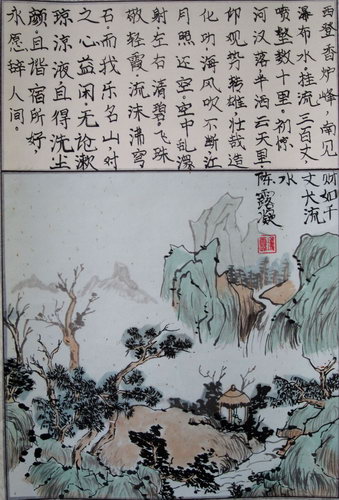 西登香炉峰，南见
瀑布水。挂流三百丈，
喷壑数十里。初惊
河汉落，半洒云天里。
仰观势转雄，壮哉造
化功，海风吹不断，江
月照还空。空中乱潈
射，左右清碧。飞珠
散轻霞，流沫沸穹
石。而我乐名山，对
之心益闲。无论漱
琼液，且得洗尘
颜。且谐宿所好，
永愿辞人间。
如千
丈 流
水
陈露凝